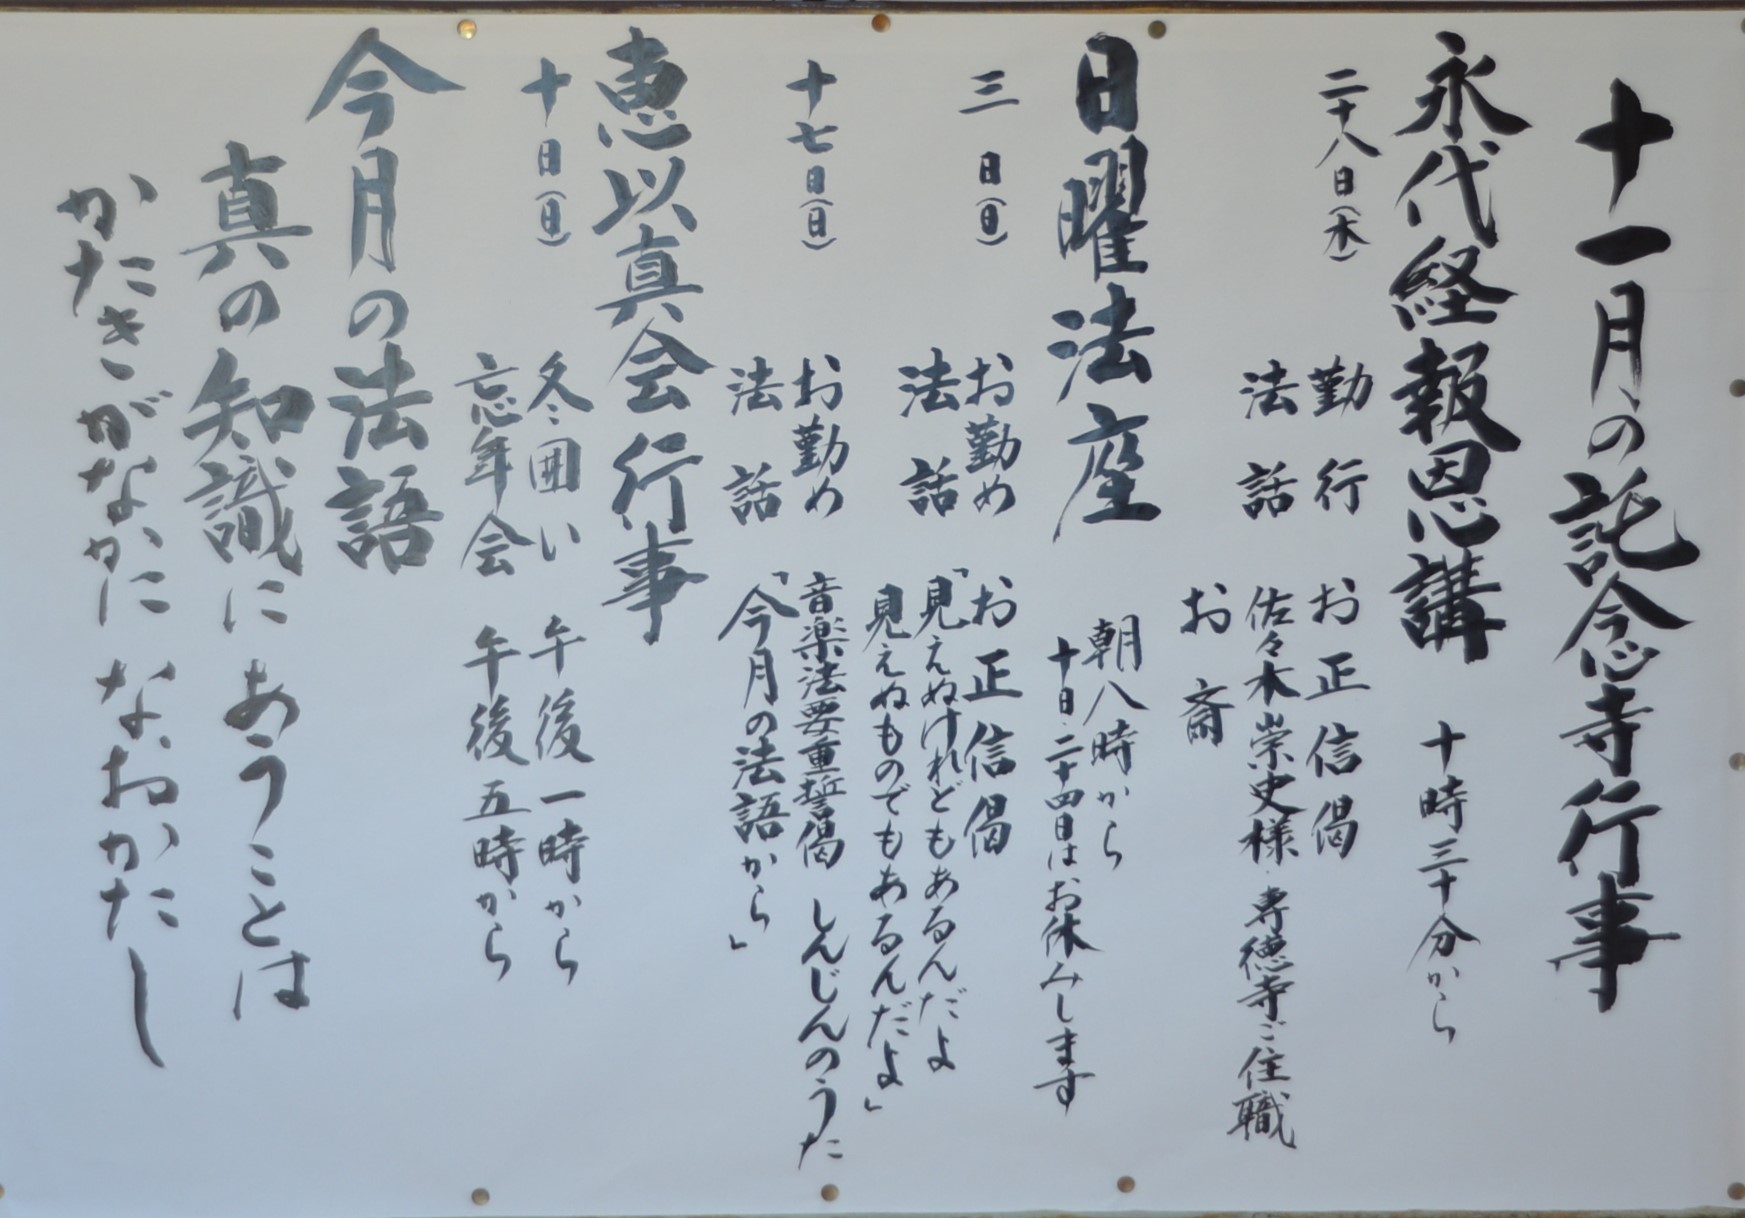 十一月の託念寺行事
永代経報恩講 十時三十分から
二十八日(木) 勤行 お正信偈
法話 佐々木崇史様・専徳寺ご住職
お斎
日曜法座 朝八時から
十日・二十四日はお休みします
三日(日) お勤め お正信偈
法話 「見えぬけれどもあるんだよ
見えぬものでもあるんだよ」
十七日(日) お勤め 音楽法要重誓偈 しんじんのうた
法話 「今月の法語から」
恵以真会行事
十日(日) 冬囲い 午後一時から
忘年会 午後五時から
今月の法語
真の知識に あうことは
かたきがなかに なおかたし